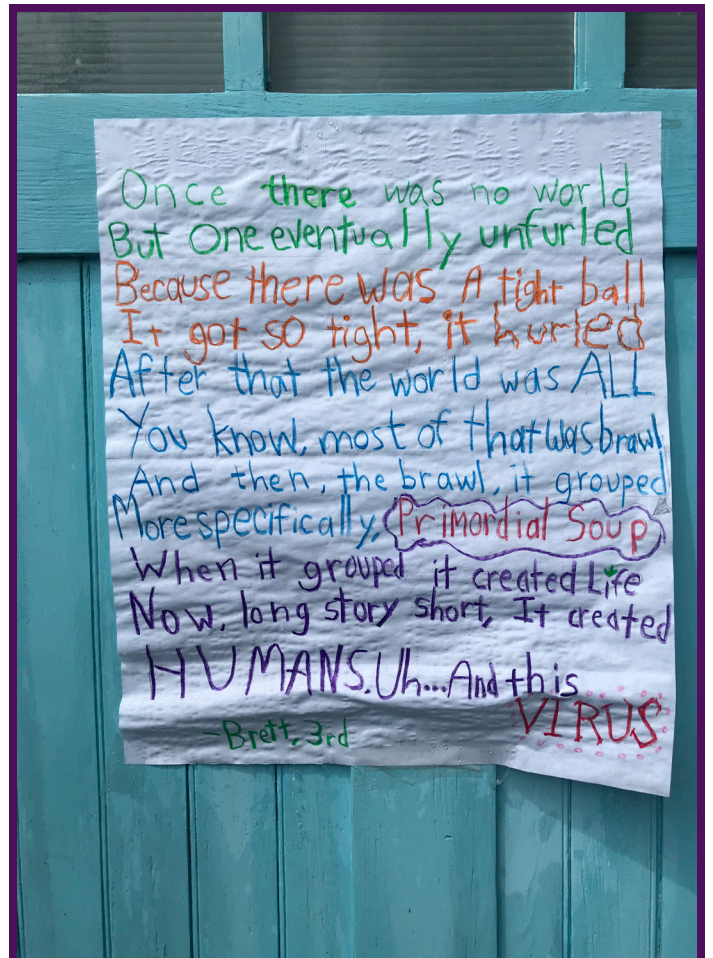 Once there was no world
But One eventually unfurled
Because there was A tight ball
It got so tight, it hurled
After that the world was ALL
You know, most of that was brawl
And then, the brawl, it grouped
More specifically, Primordial Soup
When it grouped it created Life
Now, long story short, It created
HUMANS. Uh... And this
VIRUS
-Brett, 3rd